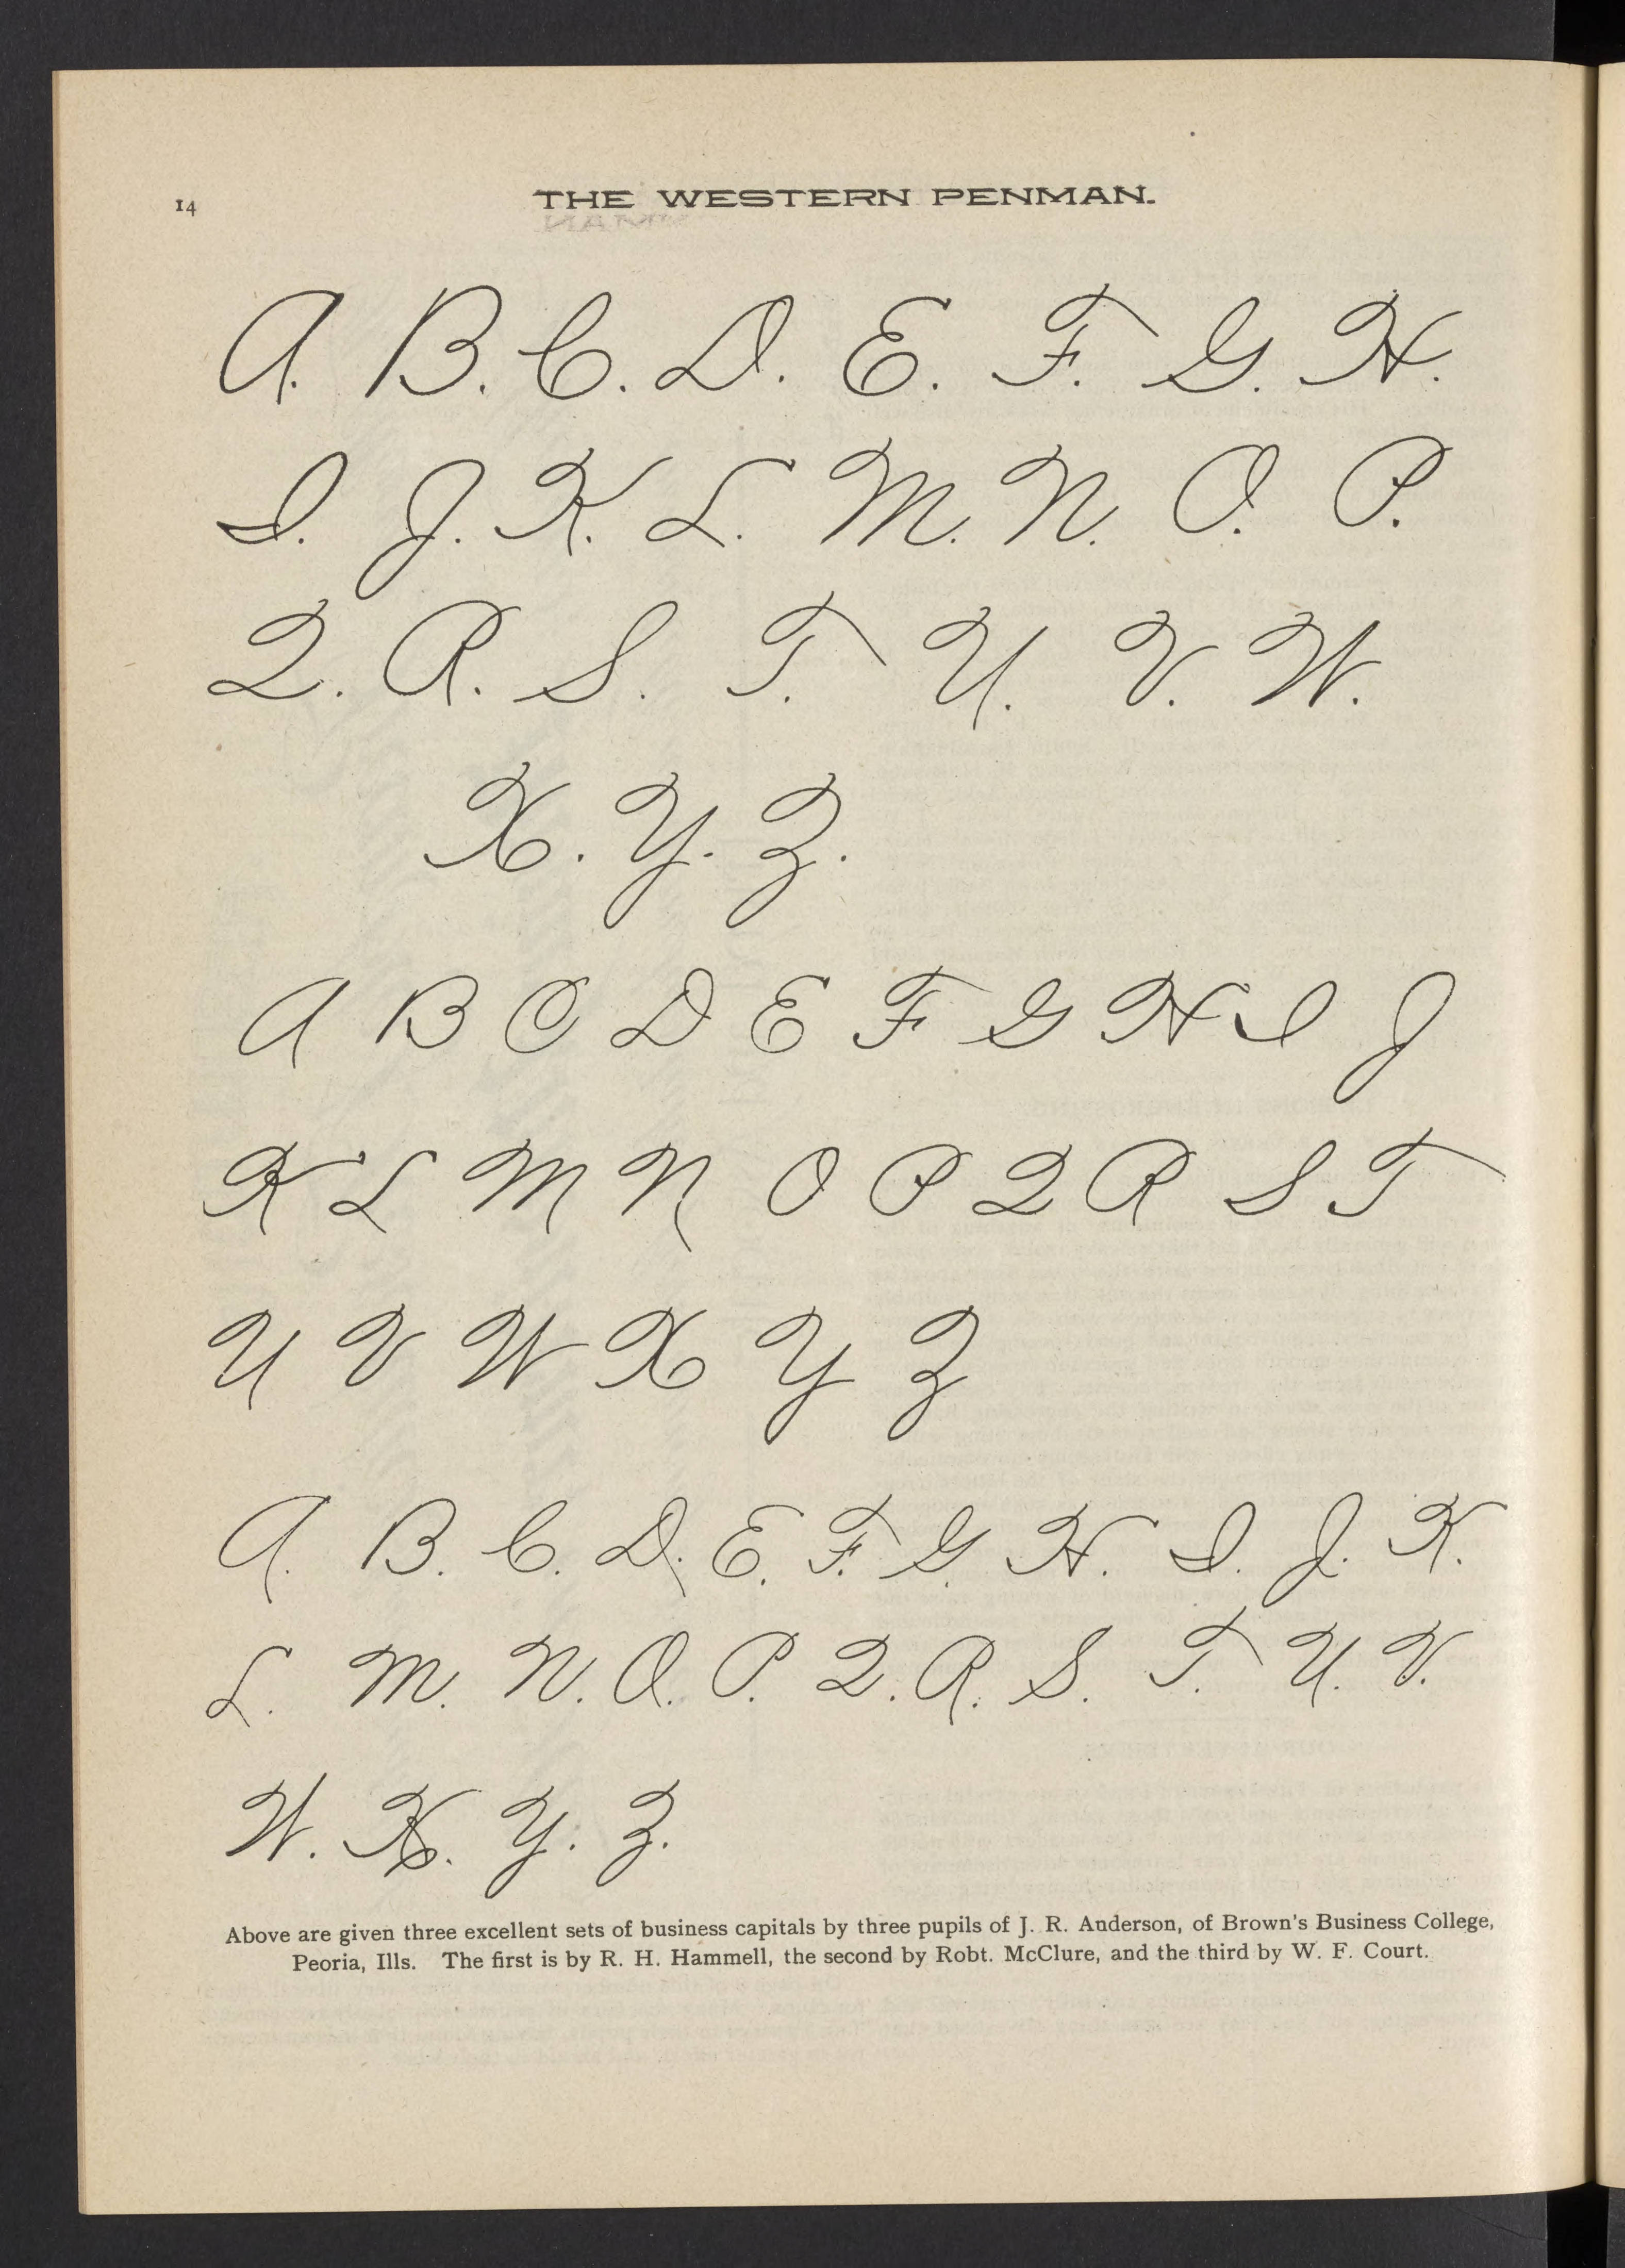 14
THE WESTERN PENMAN.
A. B. C. D. E. F. G. H.
I. J. K. L. M. N. O. P.
Q. R. S. T. U. V. W.
X. Y. Z.
A B C D E F G H I J
K L M N O P Q R S T
U V W X Y Z
A. B. C. D. E. F. G. H. I. J. K.
L. M. N. O. P. Q. R. S. T. U. V.
W. X. Y. Z.
Above are given three excellent sets of business capitals by three pupils of J. R. Anderson, of Brown's Business College,
Peoria, Ills. The first is by R. H. Hammell, the second by Robt. McClure, and the third by W. F. Court.